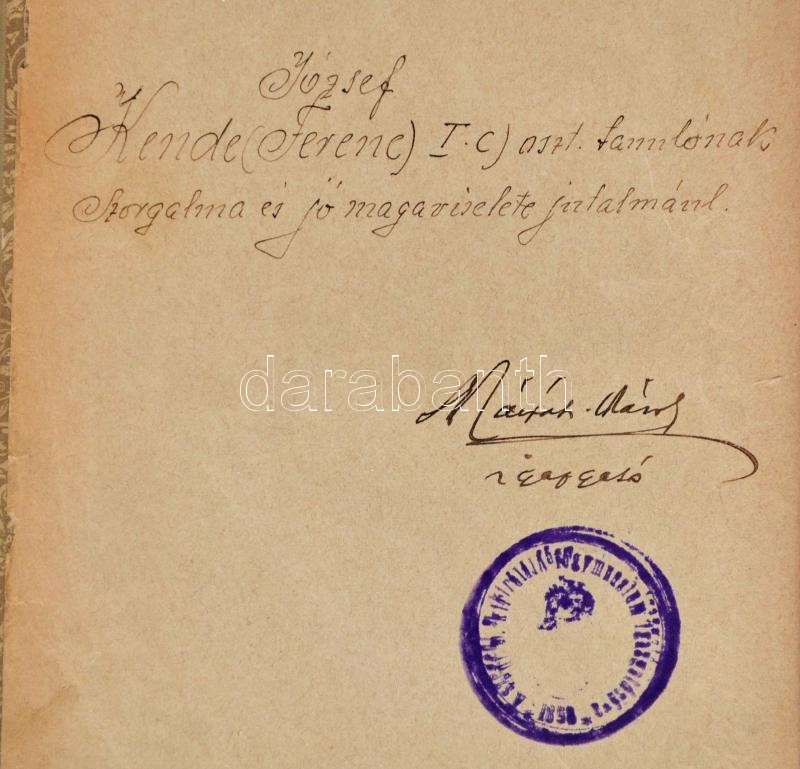 József
Kende (Ferenc) I. c) oszt. tanulónak
Szorgalma és jó magaviselete jutalmául.
darabanth
Károly
igazgató
1858